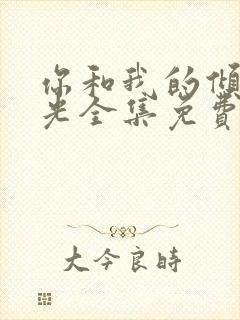 你和我的倾
光全集免费
大今良時